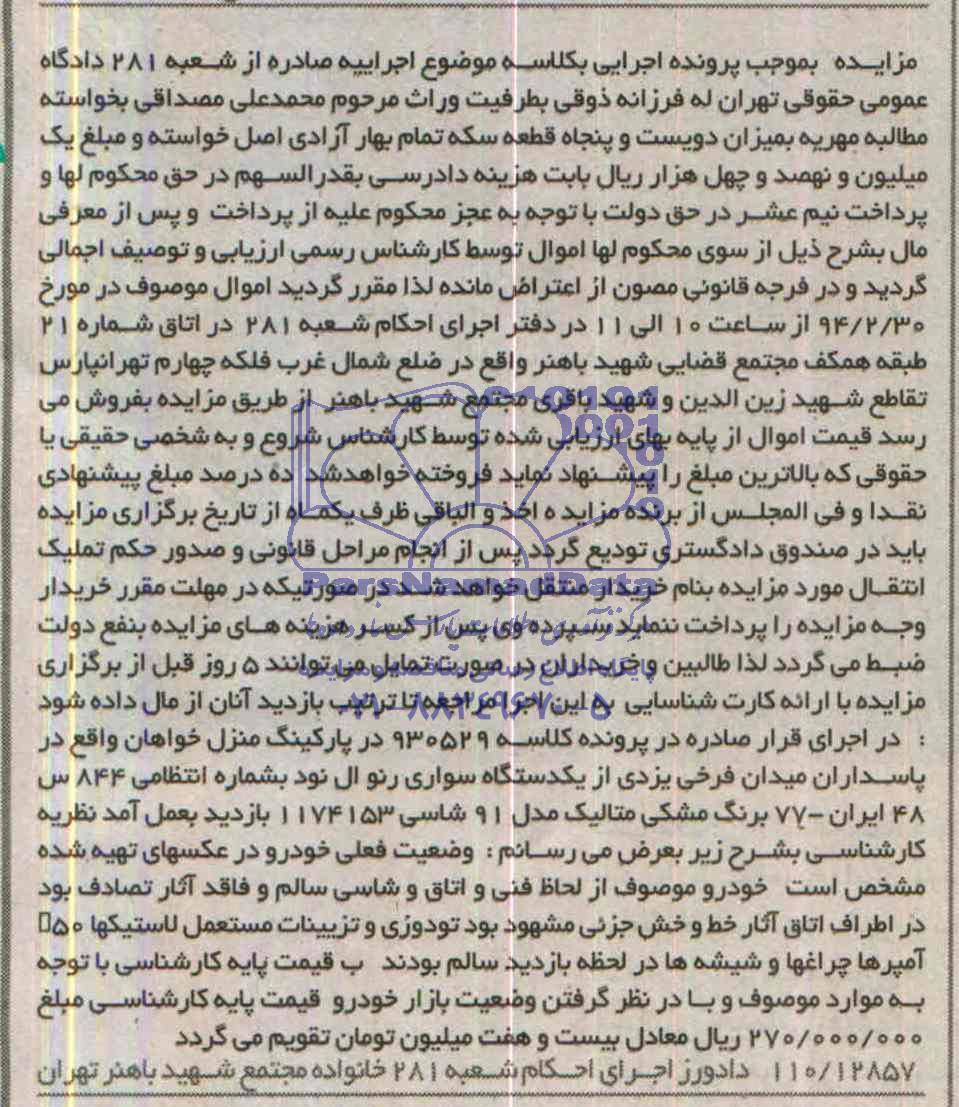 مزایـده بموجب پرونده اجرایی بکلاسـه موضوع اجراییه صادره از شـعبه ۲۸۱ دادگاه
عمومی حقوقی تهران له فرزانه ذوقی بطرفیت وراث مرحوم محمدعلی مصداقی بخواسته
مطالبه مهریه بمیزان دویست و پنجاه قطعه سکه تمام بهار آزادی اصل خواسته و مبلغ یک
میلیون و نهصد و چهل هزار ریال بابت هزینه دادرسـی بقدرالسـهم در حق محکوم لها و
پرداخت نیم عشـر در حق دولت با توجه به عجز محکوم علیه از پرداخت و پس از معرفی
مال بشرح ذیل از سوی محکوم لها اموال توسط کارشناس رسمی ارزیابی و توصیف اجمالی
گردید و در فرجه قانونی مصون از اعتراض مانده لذا مقرر گردید اموال موصوف در مورخ
۹۴/۲/۳۰ از سـاعت ۱۰ الی ۱۱ در دفتر اجرای احکام شـعبه ۲۸۱ در اتاق شـماره ۲۱
طبقه همکف مجتمع قضایی شهید باهنر واقع در ضلع شمال غرب فلکه چهارم تهرانپارس
تقاطع شـهید زین الدین و شهید باقری مجتمع شـهید باهنر از طریق مزایده بفروش می
رسد قیمت اموال از پایه بهای ارزیابی شده توسط کارشناس شروع و به شخصی حقیقی یا
حقوقی که بالاترین مبلغ را پیشـنهاد نماید فروخته خواهدشد ده درصد مبلغ پیشنهادی
نقـدا و فی المجلـس از برنده مزاید ه اخذ و الباقی ظرف یکمـاه از تاریخ برگزاری مزایده
باید در صندوق دادگستری تودیع گردد پس از انجام مراحل قانونی و صدور حکم تملیک
انتقـال مورد مزایده بنام خریدار منتقل خواهد شـد در صورتیکه در مهلت مقرر خریدار
وجـه مزایده را پرداخت ننماید سـپرده وی پس از کسـر هزینه هـای مزایده بنفع دولت
ضبـط می گردد لذا طالبین و خریـداران در صورت تمایل می توانند ۵ روز قبل از برگزاری
مزایده با ارائه کارت شناسایی به این اجرا مراجعه تا ترتیب بازدید آنان از مال داده شود
: در اجرای قرار صادره در پرونده کلاسـه ۹۳۰۵۲۹ در پارکینگ منزل خواهان واقع در
پاسـداران میدان فرخی یزدی از یکدستگاه سواری رنو ال نود بشماره انتظامی ۸۴۴ س
۴۸ ایران -۷۷ برنگ مشکی متالیک مدل ۹۱ شاسی ۱۱۷۴۱۵۳ بازدید بعمل آمد نظریه
کارشناسـی بشـرح زیر بعرض می رسـانم : وضعیت فعلی خودرو در عکسهای تهیه شده
مشخص است خودرو موصوف از لحاظ فنی و اتاق و شاسی سالم و فاقد آثار تصادف بود
در اطراف اتاق آثار خط و خش جزئی مشهود بود تودوزی و تزیینات مستعمل لاستیکها ۵۰
آمپرها چراغها و شیشه ها در لحظه بازدید سالم بودند ب قیمت پایه کارشناسی با توجه
بـه موارد موصوف و بـا در نظر گرفتن وضعیت بازار خودرو قیمت پایه کارشناسـی مبلغ
۲۷۰/۰۰۰/۰۰۰ ریال معادل بیست و هفت میلیون تومان تقویم می گردد
۱۱۰/۱۲۸۵۷ دادورز اجـرای احـکام شـعبه ۲۸۱ خانواده مجتمع شـهید باهنر تهران
ParsNamadData
۰۲۱-۸۸۳۴۹۶۷۰-۵